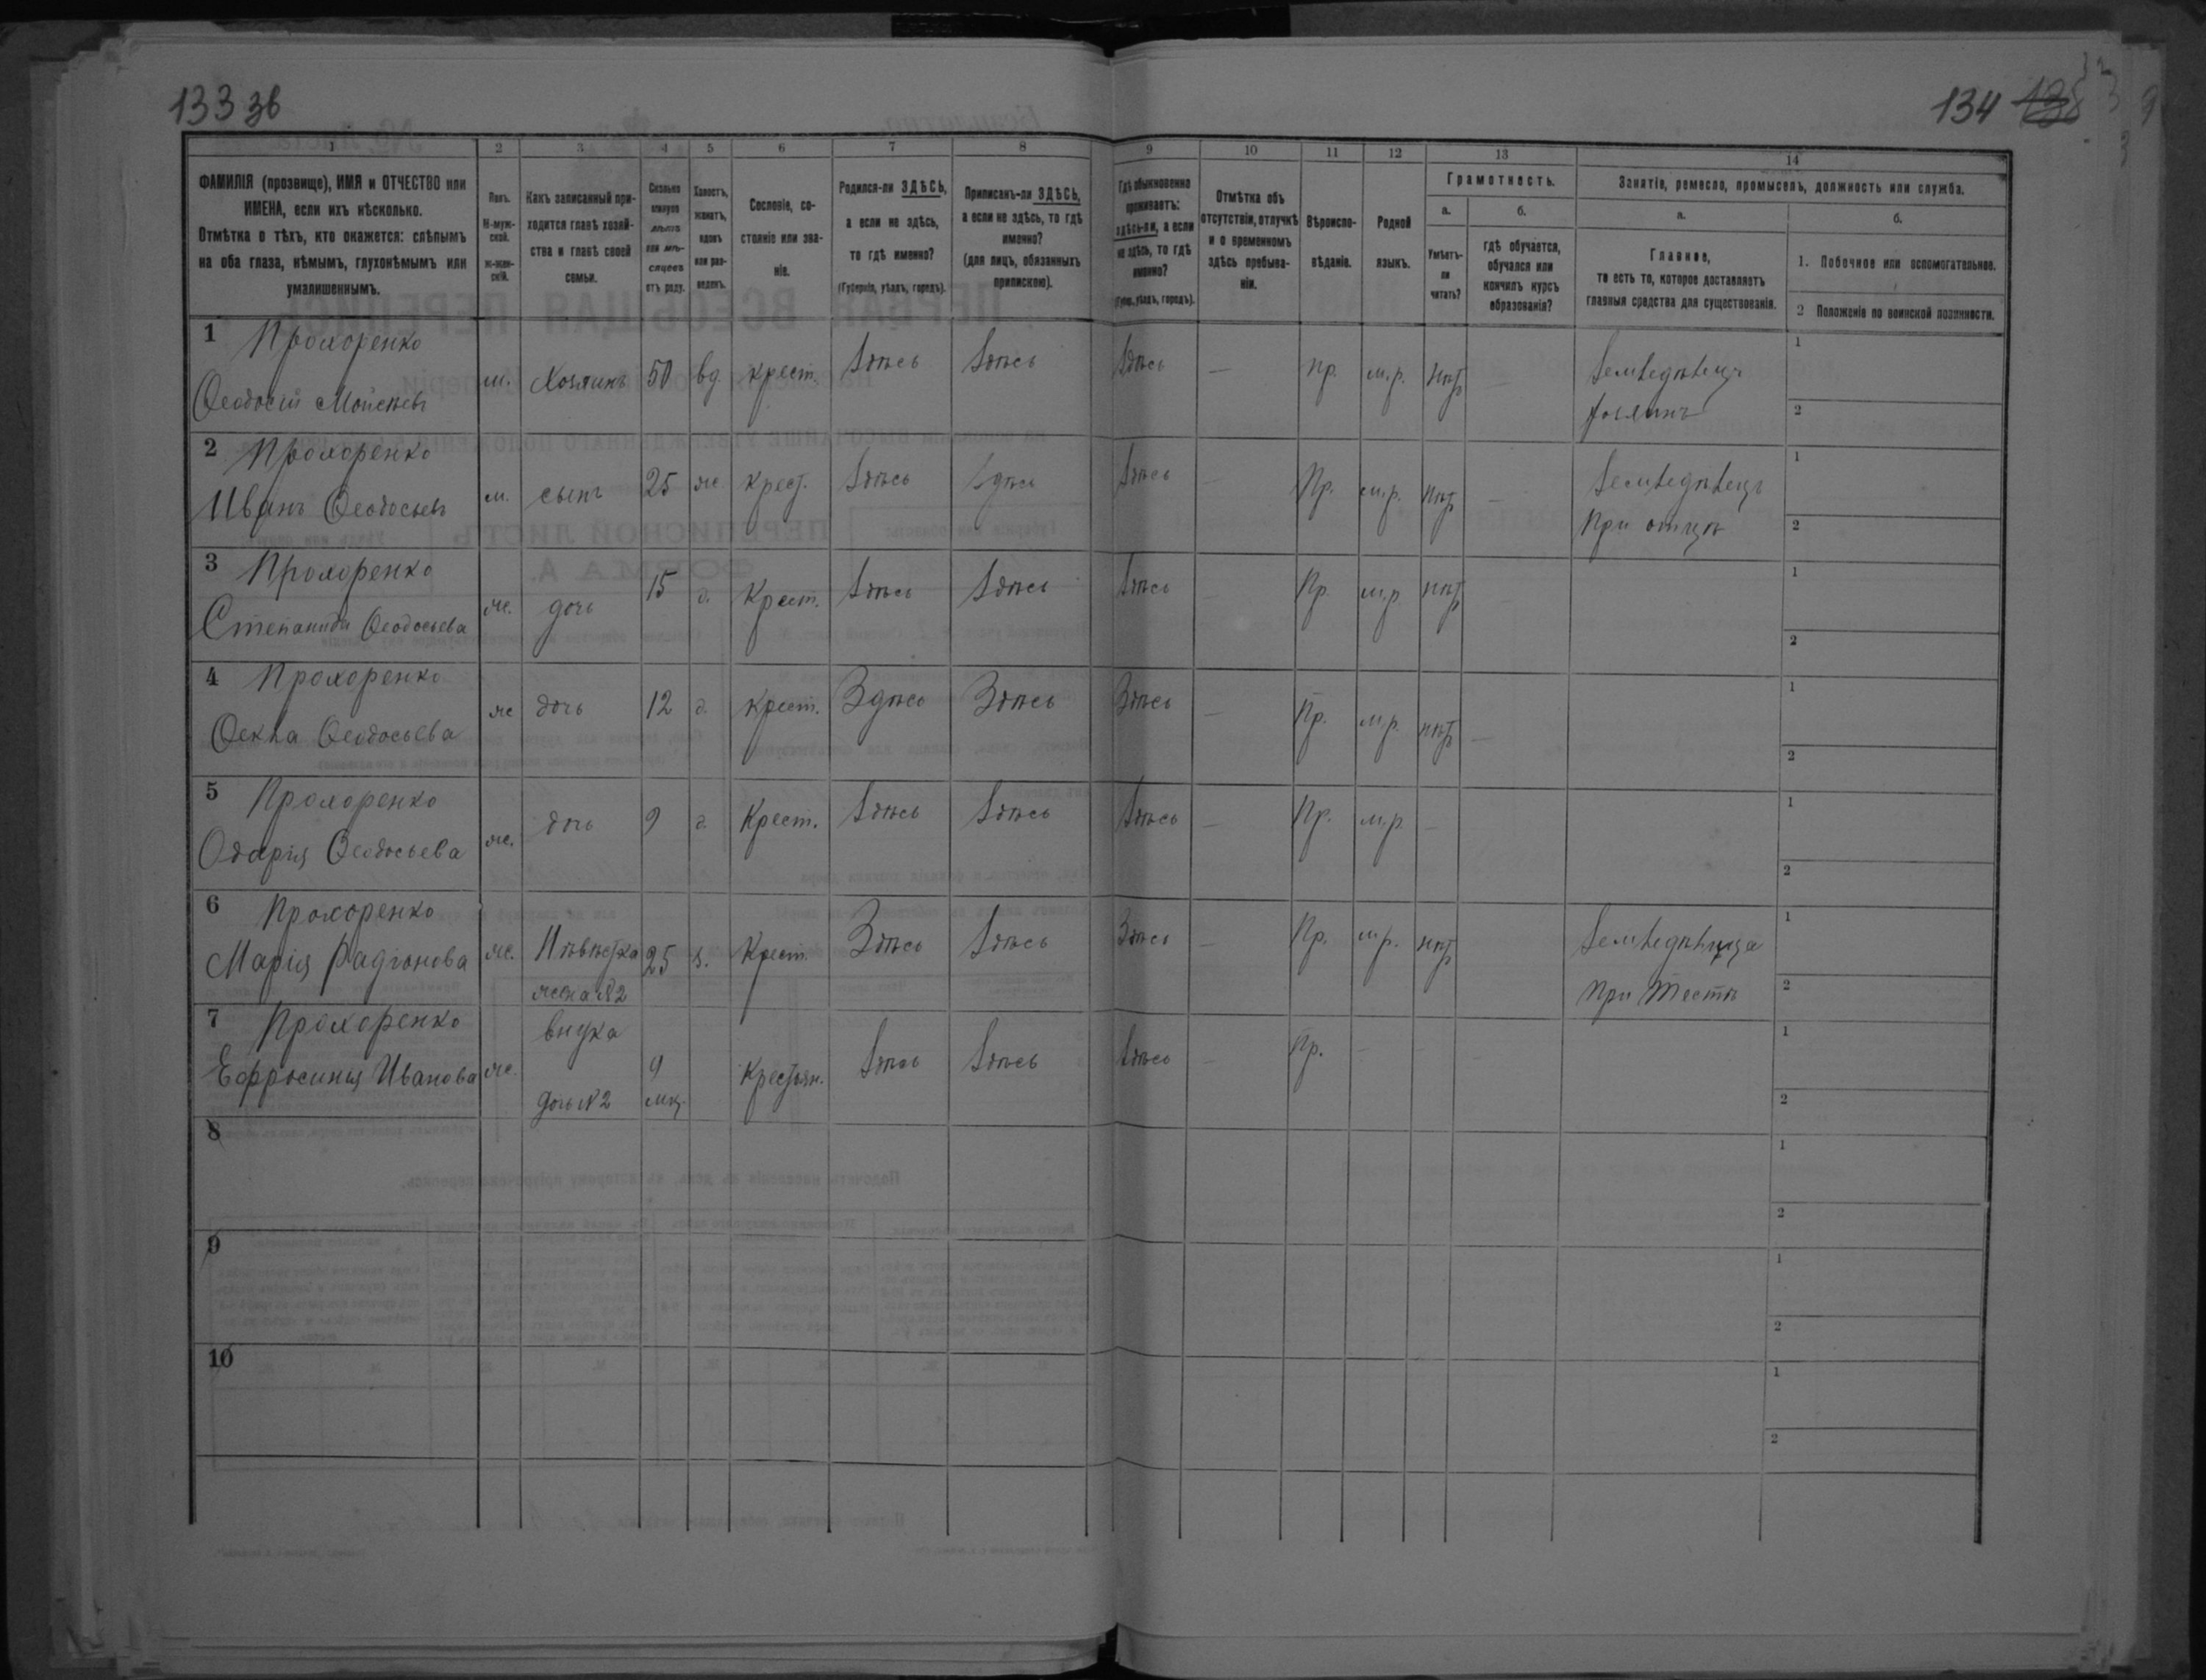 133 зв
134 138
1 2 3 4 5 6 7 8 9 10 11 12 13 14
ФАМИЛІЯ (прозвище), ИМЯ и ОТЧЕСТВО или
ИМЕНА, если ихъ нѣсколько.
Отмѣтка о тѣхъ, кто окажется: слѣпымъ
на оба глаза, нѣмымъ, глухонѣмымъ или
умалишеннымъ.
Полъ.
М-муж-
ской.
ж-жен-
скій.
Какъ записанный при-
ходится главѣ хозяй-
ства и главѣ своей
семьи.
Сколько
минуло
лѣтъ
или мѣ-
сяцевъ
отъ роду.
Холостъ,
женатъ,
вдовъ
или раз-
веденъ.
Сословіе, со-
стояніе или зва-
ніе.
Родился-ли ЗДѢСЬ,
а если не здѣсь,
то гдѣ именно?
(Губернія, уѣздъ, городъ).
Приписанъ-ли ЗДѢСЬ,
а если не здѣсь, то гдѣ
именно?
(для лицъ, обязанныхъ
припискою).
Гдѣ обыкновенно
проживаетъ:
здѣсь-ли, а если
не здѣсь, то гдѣ
именно?
(Губ., уѣздъ, городъ).
Отмѣтка объ
отсутствіи, отлучкѣ
и о временномъ
здѣсь пребыва-
ніи.
Вѣроиспо-
вѣданіе.
Родной
языкъ.
Грамотность.
а.
Умѣетъ-
ли
читать?
б.
гдѣ обучается,
обучался или
кончилъ курсъ
образованія?
Занятіе, ремесло, промыселъ, должность или служба.
а.
Главное,
то есть то, которое доставляетъ
главныя средства для существованія.
б.
1. Побочное или вспомогательное.
2 Положеніе по воинской повинности.
1 Прохоренко
Ѳеодосій Мойсѣевъ м. Хозяинъ 50 вд. крест. Здѣсь Здѣсь Здѣсь — пр. м.р. нѣтъ — Земледѣлецъ
хозяинъ
1
2
2 Прохоренко
Иванъ Ѳеодосьевъ м. сынъ 25 ж. крест. Здѣсь Здѣсь Здѣсь — Пр. м.р. нѣтъ — Земледѣлецъ
При отцѣ
1
2
3 Прохоренко
Степанида Ѳеодосьева ж. дочь 15 д. Крест. Здѣсь Здѣсь Здѣсь — Пр. м.р. нѣтъ —
1
2
4 Прохоренко
Ѳекла Ѳеодосьева ж дочь 12 д. Крест. Здѣсь Здѣсь Здѣсь — Пр. м.р. нѣтъ —
1
2
5 Прохоренко
Одарія Ѳеодосьева ж. дочь 9 д. Крест. Здѣсь Здѣсь Здѣсь — Пр. м.р. —
1
2
6 Прохоренко
Марія Радіонова ж. Невѣстка 25 з. Крест. Здѣсь Здѣсь Здѣсь — Пр. м.р. нѣтъ Земледѣлица
жена №2 При Тестѣ
1
2
7 Прохоренко внука
Ефросинія Иванова ж. 9 Крестьян. Здѣсь Здѣсь Здѣсь — Пр. — — —
дочь №2 мц.
1
2
8
1
2
9
1
2
10
1
2